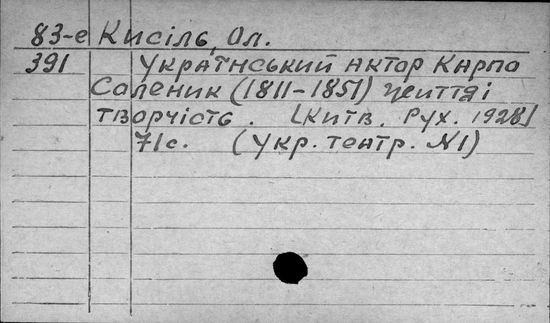 83-е Кисіль, Ол.
391 Український актор Карпо
Соленик (1811-1851) життя і
творчість. [Київ. Рух. 1928]
71с. (Укр. театр. №1)